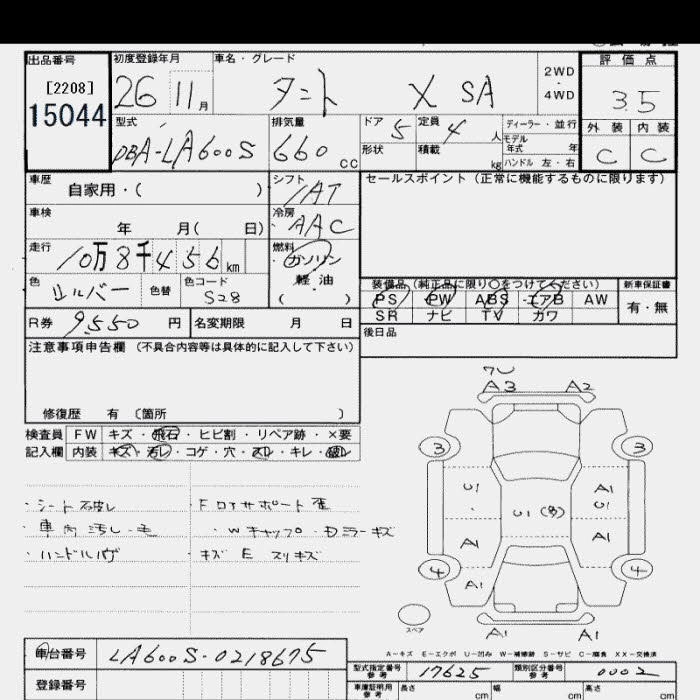 出品番号 初度登録年月 車名・グレード 評価点
[2208] 26 11月 タント X SA 2WD・4WD 3.5
15044
型式 排気量 ドア 5 定員 4 人 ディーラー・並行 外装 内装
DBA-LA600S 660 cc 形状 積載 kg モデル年式 年 C C
ハンドル 左・右
車歴 自家用・( ) シフト IAT セールスポイント (正常に機能するものに限ります)
車検 年 月( 日) 冷房 AAC
走行 10万8千456km 燃料 ガソリン
軽油
( )
色 シルバー 色替 色コード S28 装備品 (純正品に限り○をつけてください) 新車保証書
PS PW ABS エアB AW 有・無
R券 9550円 名変期限 月 日 SR ナビ TV カワ
後日品
注意事項申告欄 (不具合内容等は具体的に記入して下さい)
修復歴 有 〔箇所 〕
検査員 FW キズ・飛石・ヒビ割・リペア跡・×要
記入欄 内装 キズ・汚レ・コゲ・穴・スレ・キレ・破レ
・シート破レ ・FロアサポートE歪
・車内汚し・毛 ・Wキャップ・Dミラーキズ
・ハンドルハゲ キズ E スリキズ
A3 A2
3 3
U1 U1 (8) A1
U1
A1 A1
4 4
A1
スペア
A1 A1
A-キズ E-エクボ U-凹み W-補修跡 S-サビ C-腐食 XX-交換済
車台番号 LA600S-0218675
型式指定番号 参考 17625 類別区分番号 参考 0002
登録番号 車庫証明用 参考 長さ cm 幅 cm 高さ cm